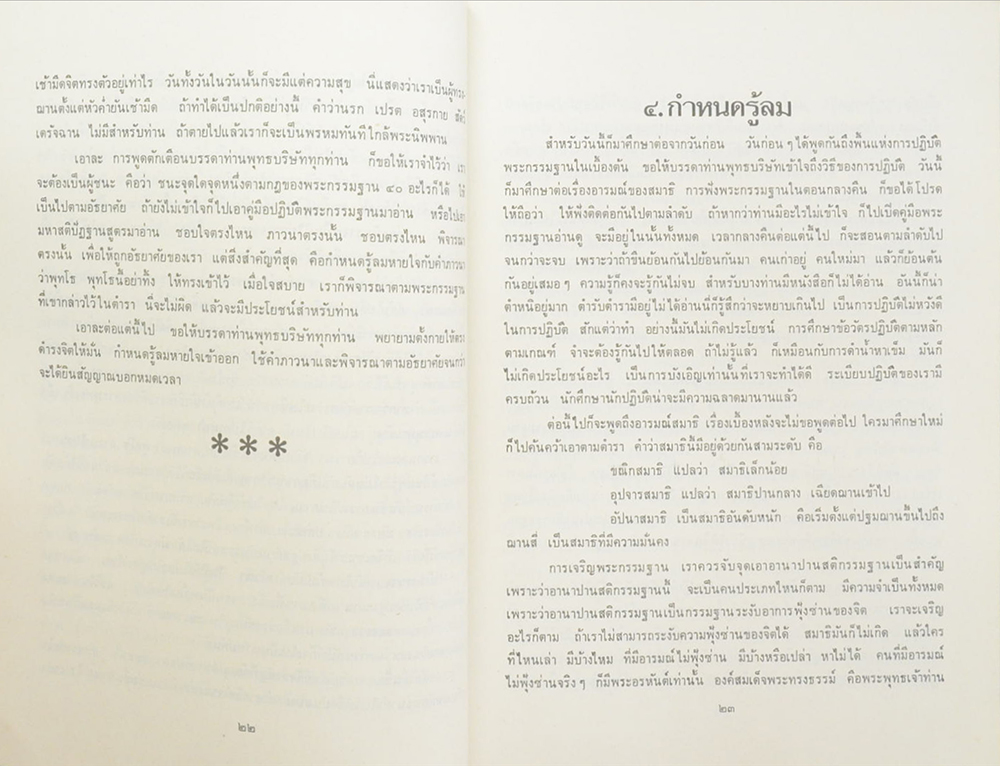 เช้ามืดจิตทรงตัวอยู่เท่าไร วันทั้งวันในวันนั้นก็จะมีแต่ความสุข นี่แสดงว่าเราเป็นผู้ทรง
ฌานตั้งแต่หัวค่ำยันเช้ามืด ถ้าทำได้เป็นปกติอย่างนี้ คำว่านรก เปรต อสุรกาย สัตว์
เดรัจฉาน ไม่มีสำหรับท่าน ถ้าตายไปแล้วเราก็จะเป็นพรหมทันที ใกล้พระนิพพาน
เอาละ การพูดตักเตือนบรรดาท่านพุทธบริษัททุกท่าน ก็ขอให้เราจำไว้ว่า เรา
จะต้องเป็นผู้ชนะ คือว่า ชนะจุดใดจุดหนึ่งตามกฎของพระกรรมฐาน ๔๐ อะไรก็ได้ ให้
เป็นไปตามอัธยาศัย ถ้ายังไม่เข้าใจก็ไปเอาคู่มือปฏิบัติพระกรรมฐานมาอ่าน หรือไปเอา
มหาสติปัฏฐานสูตรมาอ่าน ชอบใจตรงไหน ภาวนาตรงนั้น ชอบตรงไหน พิจารณา
ตรงนั้น เพื่อให้ถูกอัธยาศัยของเรา แต่สิ่งสำคัญที่สุด คือกำหนดรู้ลมหายใจกับคำภาวนา
ว่าพุทโธ พุทโธนี้อย่าทิ้ง ให้ทรงเข้าไว้ เมื่อใจสบาย เราก็พิจารณาตามพระกรรมฐาน
ที่เขากล่าวไว้ในตำรา นี่จะไม่ผิด แล้วจะมีประโยชน์สำหรับท่าน
เอาละต่อแต่นี้ไป ขอให้บรรดาท่านพุทธบริษัททุกท่าน พยายามตั้งกายให้ตรง
ดำรงจิตให้มั่น กำหนดรู้ลมหายใจเข้าออก ใช้คำภาวนาและพิจารณาตามอัธยาศัยจนกว่า
จะได้ยินสัญญาณบอกหมดเวลา
***
๒๒
๔. กำหนดรู้ลม
สำหรับวันนี้ก็มาศึกษาต่อจากวันก่อน วันก่อนๆ ได้พูดกันถึงพื้นแห่งการปฏิบัติ
พระกรรมฐานในเบื้องต้น ขอให้บรรดาท่านพุทธบริษัทเข้าใจถึงวิธีของการปฏิบัติ วันนี้
ก็มาศึกษาต่อเรื่องอารมณ์ของสมาธิ การฟังพระกรรมฐานในตอนกลางคืน ก็ขอได้โปรด
ให้ถือว่า ให้ฟังติดต่อกันไปตามลำดับ ถ้าหากว่าท่านมีอะไรไม่เข้าใจ ก็ไปเปิดคู่มือพระ
กรรมฐานอ่านดู จะมีอยู่ในนั้นทั้งหมด เวลากลางคืนต่อแต่นี้ไป ก็จะสอนตามลำดับไป
จนกว่าจะจบ เพราะว่าถ้าขืนย้อนกันไปย้อนกันมา คนเก่าอยู่ คนใหม่มา แล้วก็ย้อนต้น
กันอยู่เสมอๆ ความรู้ก็คงจะรู้กันไม่จบ สำหรับบางท่านมีหนังสือก็ไม่ได้อ่าน อันนี้ก็น่า
ตำหนิอยู่มาก ตำรับตำรามีอยู่ไม่ได้อ่านนี่ก็รู้สึกว่าจะหยาบเกินไป เป็นการปฏิบัติไม่หวังดี
ในการปฏิบัติ สักแต่ว่าทำ อย่างนี้มันไม่เกิดประโยชน์ การศึกษาข้อวัตรปฏิบัติตามหลัก
ตามเกณฑ์ จำจะต้องรู้กันไปให้ตลอด ถ้าไม่รู้แล้ว ก็เหมือนกับการดำน้ำหาเข็ม มันก็
ไม่เกิดประโยชน์อะไร เป็นการบังเอิญเท่านั้นที่เราจะทำได้ดี ระเบียบปฏิบัติของเรามี
ครบถ้วน นักศึกษานักปฏิบัติน่าจะมีความฉลาดมานานแล้ว
ต่อนี้ไปก็จะพูดถึงอารมณ์สมาธิ เรื่องเบื้องหลังจะไม่ขอพูดต่อไป ใครมาศึกษาใหม่
ก็ไปค้นคว้าเอาตามตำรา คำว่าสมาธินี้มีอยู่ด้วยกันสามระดับ คือ
ขณิกสมาธิ แปลว่า สมาธิเล็กน้อย
อุปจารสมาธิ แปลว่า สมาธิปานกลาง เฉียดฌานเข้าไป
อัปนาสมาธิ เป็นสมาธิอันดับหนัก คือเริ่มตั้งแต่ปฐมฌานขึ้นไปถึง
ฌานสี่ เป็นสมาธิที่มีความมั่นคง
การเจริญพระกรรมฐาน เราควรจับจุดเอาอานาปานสติกรรมฐานเป็นสำคัญ
เพราะว่าอานาปานสติกรรมฐานนี้ จะเป็นคนประเภทไหนก็ตาม มีความจำเป็นทั้งหมด
เพราะว่าอานาปานสติกรรมฐานเป็นกรรมฐานระงับอาการฟุ้งซ่านของจิต เราจะเจริญ
อะไรก็ตาม ถ้าเราไม่สามารถระงับความฟุ้งซ่านของจิตได้ สมาธิมันก็ไม่เกิด แล้วใคร
ที่ไหนเล่า มีบ้างไหม ที่มีอารมณ์ไม่ฟุ้งซ่าน มีบ้างหรือเปล่า หาไม่ได้ คนที่มีอารมณ์
ไม่ฟุ้งซ่านจริงๆ ก็มีพระอรหันต์เท่านั้น องค์สมเด็จพระทรงธรรม์ คือพระพุทธเจ้าท่าน
๒๓